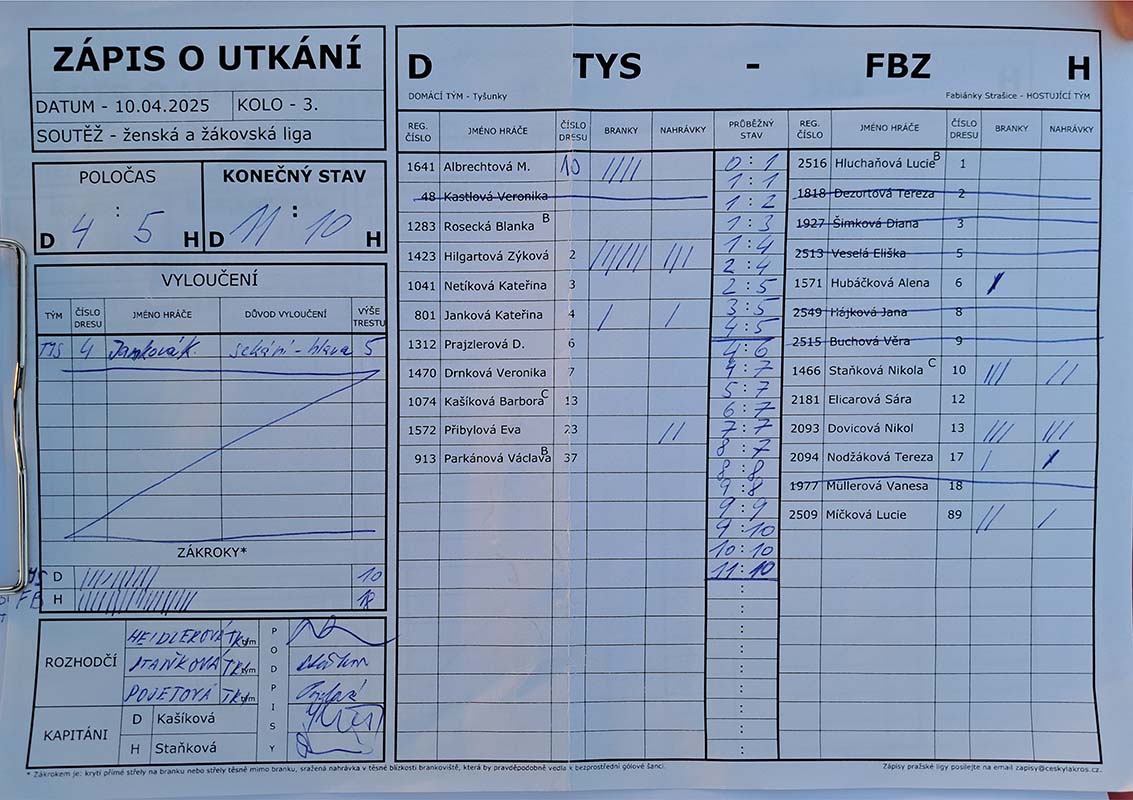 ZÁPIS O UTKÁNÍ
DATUM - 10.04.2025 KOLO - 3.
SOUTĚŽ - ženská a žákovská liga
POLOČAS KONEČNÝ STAV
D 4 : 5 H D 11 : 10 H
VYLOUČENÍ
TÝM ČÍSLO DRESU JMÉNO HRÁČE DŮVOD VYLOUČENÍ VÝŠE TRESTU
TYS 4 Janková K. sekání - hlava 5
ZÁKROKY*
D 10
H
ROZHODČÍ
HEIDLEROVÁ TK tým
STAŇKOVÁ TK tým
POJETOVÁ TK tým
PODPISY
KAPITÁNI
D Kašíková
H Staňková
D TYS - FBZ H
DOMÁCÍ TÝM - Tyšunky Fabiánky Strašice - HOSTUJÍCÍ TÝM
REG. ČÍSLO JMÉNO HRÁČE ČÍSLO DRESU BRANKY NAHRÁVKY PRŮBĚŽNÝ STAV REG. ČÍSLO JMÉNO HRÁČE ČÍSLO DRESU BRANKY NAHRÁVKY
1641 Albrechtová M. 10 ////
48 Kastlová Veronika
1283 Rosecká Blanka B
1423 Hilgartová Zýková 2 ////// ///
1041 Netíková Kateřina 3
801 Janková Kateřina 4 / /
1312 Prajzlerová D. 6
1470 Drnková Veronika 7
1074 Kašíková Barbora C 13
1572 Přibylová Eva 23 //
913 Parkánová Václava B 37
0 : 1
1 : 1
1 : 2
1 : 3
1 : 4
2 : 4
2 : 5
3 : 5
4 : 5
4 : 6
4 : 7
5 : 7
6 : 7
7 : 7
8 : 7
8 : 8
9 : 8
9 : 9
9 : 10
10 : 10
11 : 10
2516 Hluchaňová Lucie B 1
1818 Dezortová Tereza 2
1927 Šimková Diana 3
2513 Veselá Eliška 5
1571 Hubáčková Alena 6 /
2549 Hájková Jana 8
2515 Buchová Věra 9
1466 Staňková Nikola C 10 /// //
2181 Elicarová Sára 12
2093 Dovicová Nikol 13 /// ///
2094 Nodžáková Tereza 17 / /
1977 Müllerová Vanesa 18
2509 Míčková Lucie 89 // /
* Zákrokem je: krytí přímé střely na branku nebo střely těsně mimo branku, sražená nahrávka v těsné blízkosti brankoviště, která by pravděpodobně vedla k bezprostřední gólové šanci.
Zápisy pražské ligy posílejte na email zapisy@ceskylakros.cz.